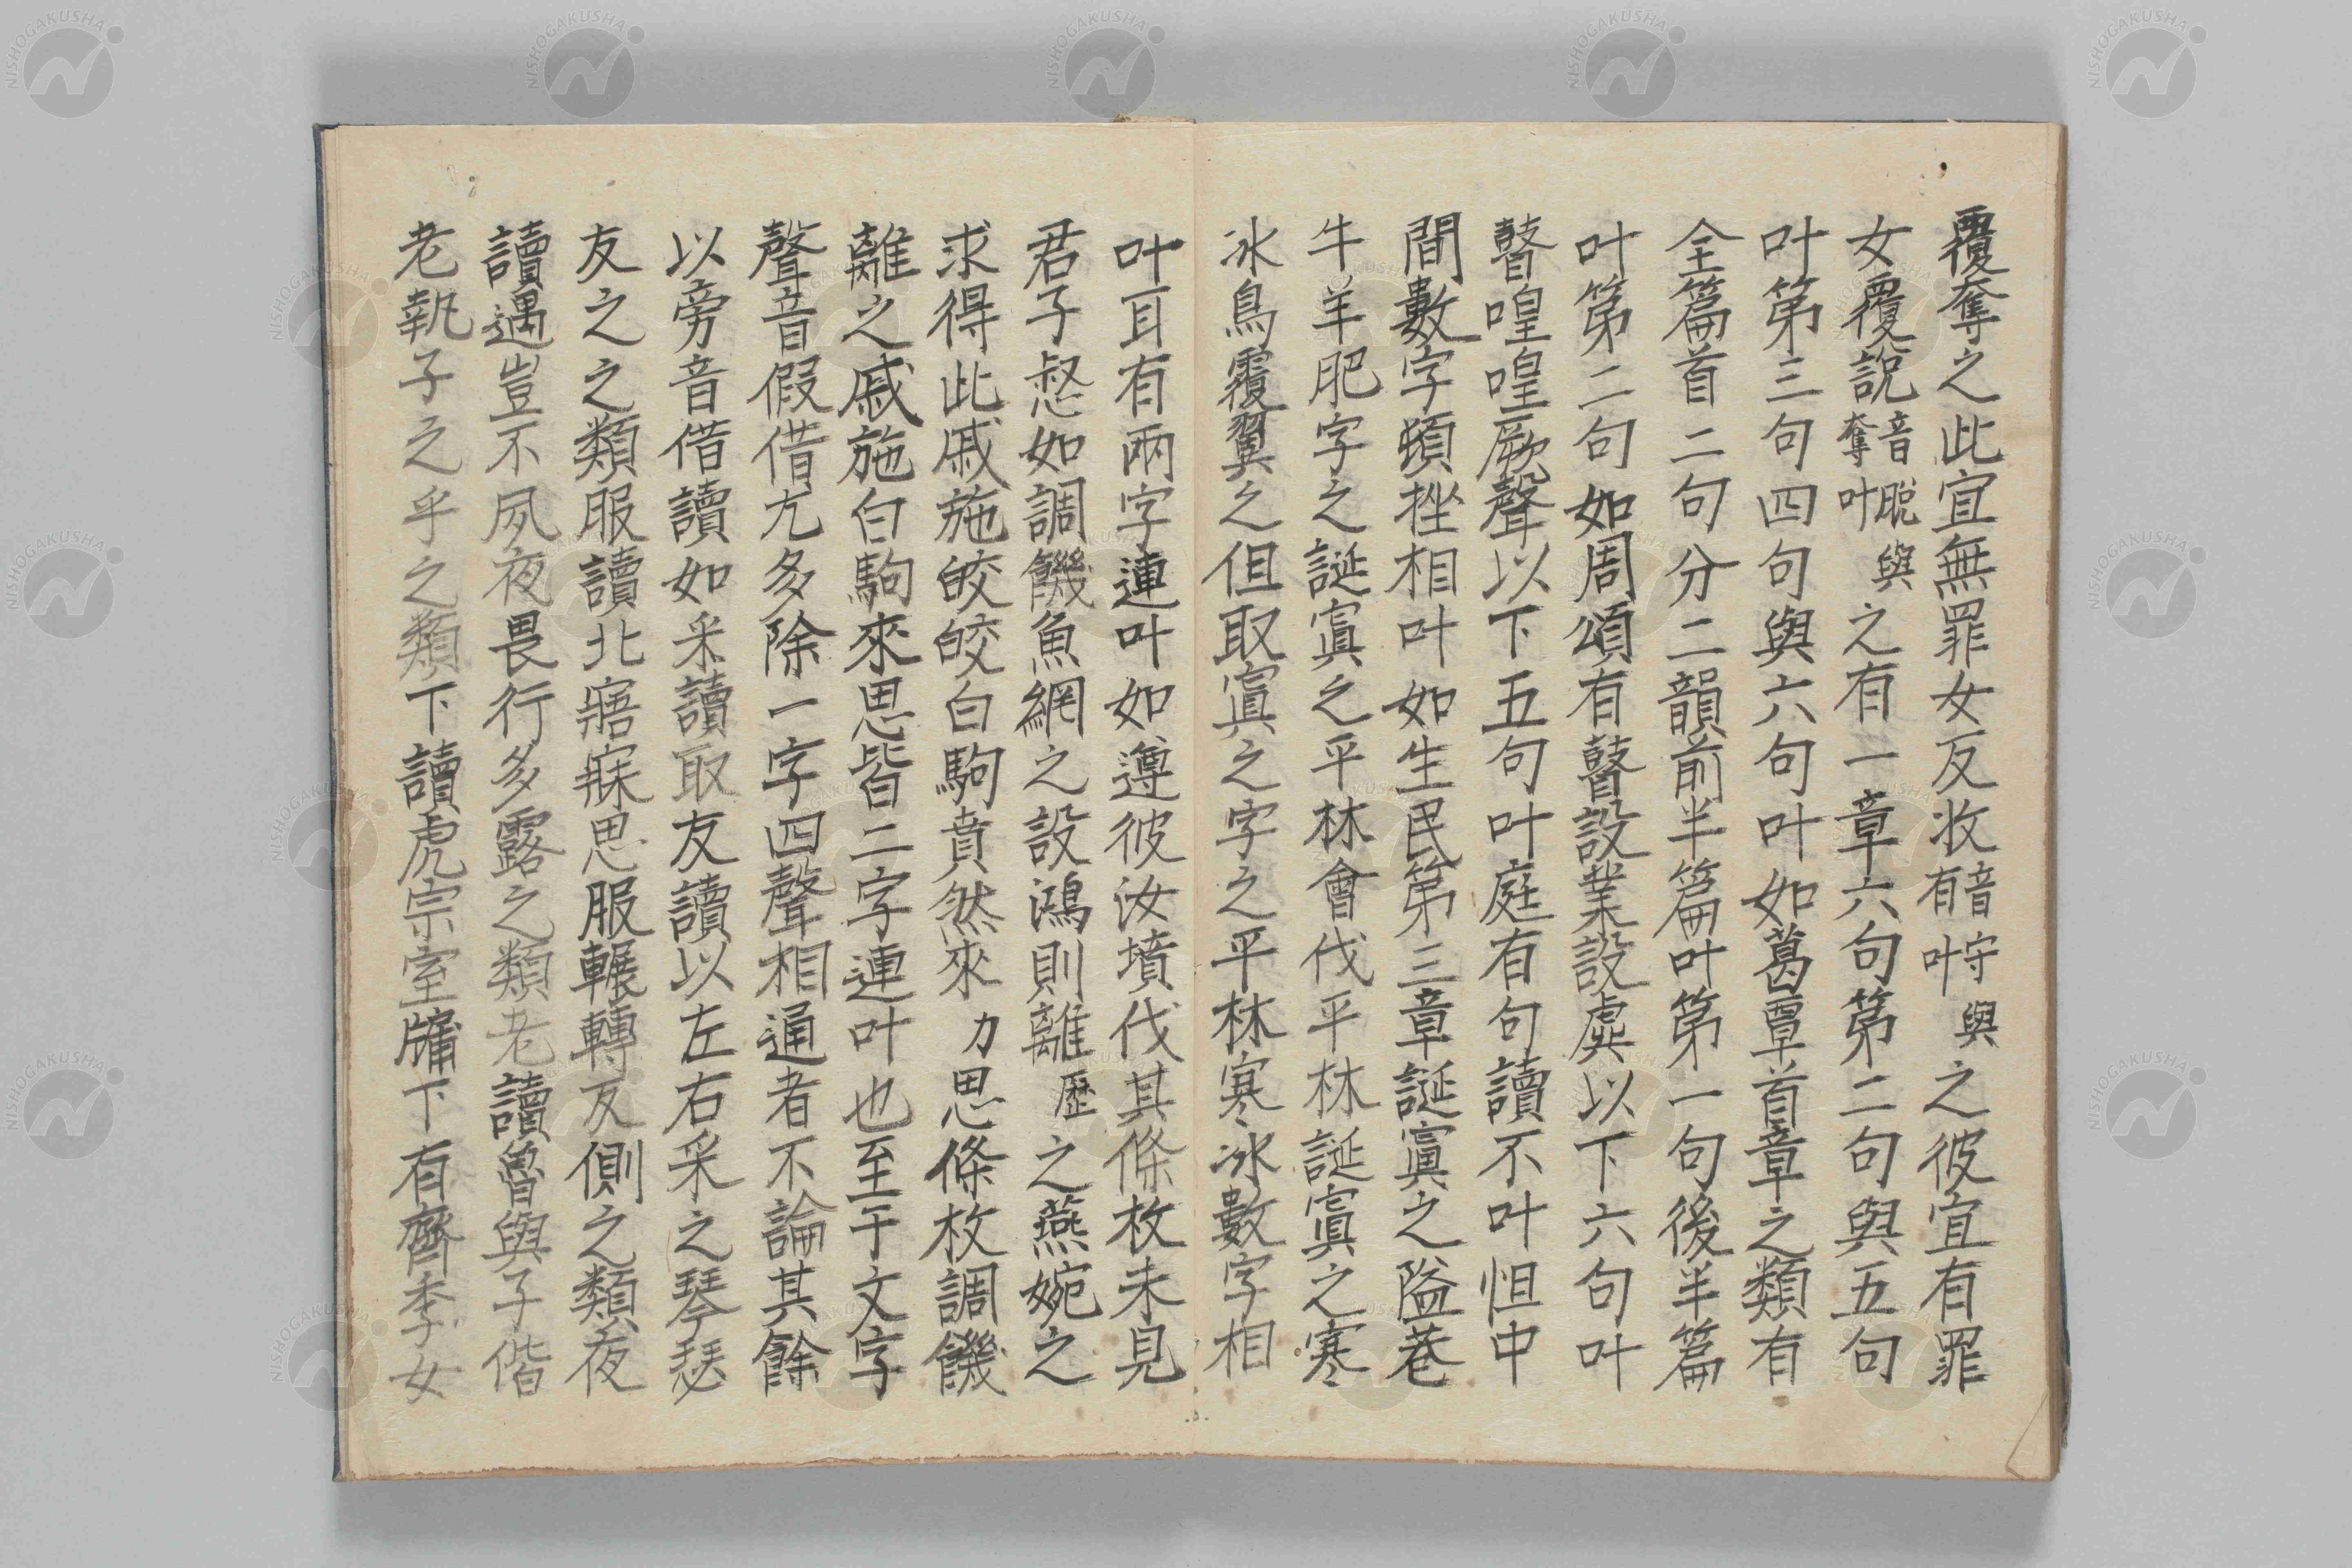 覆奪之此宜無罪女反收音守有叶與之彼宜有罪
女覆說音脫奪叶與之有一章六句第二句與五句
叶第三句四句與六句叶如葛覃首章之類有
全篇首二句分二韻前半篇叶第一句後半篇
叶第二句如周頌有瞽設業設虡以下六句叶
瞽喤喤厥聲以下五句叶庭有句讀不叶但中
間數字頓挫相叶如生民第三章誕寘之隘巷
牛羊肥字之誕寘之平林會伐平林誕寘之寒
冰鳥覆翼之但取寘之字之平林寒冰數字相
叶耳有兩字連叶如遵彼汝墳伐其條枚未見
君子惄如調饑魚網之設鴻則離歷之燕婉之
求得此戚施皎皎白駒賁然來力思條枚調饑
離之戚施白駒來思皆二字連叶也至于文字
聲音假借尤多除一字四聲相通者不論其餘
以旁音借讀如采讀取友讀以左右采之琴瑟
友之之類服讀北寤寐思服輾轉反側之類夜
讀遇豈不夙夜畏行多露之類老讀魯與子偕
老執子之乎之類下讀虎宗室牖下有齊季女